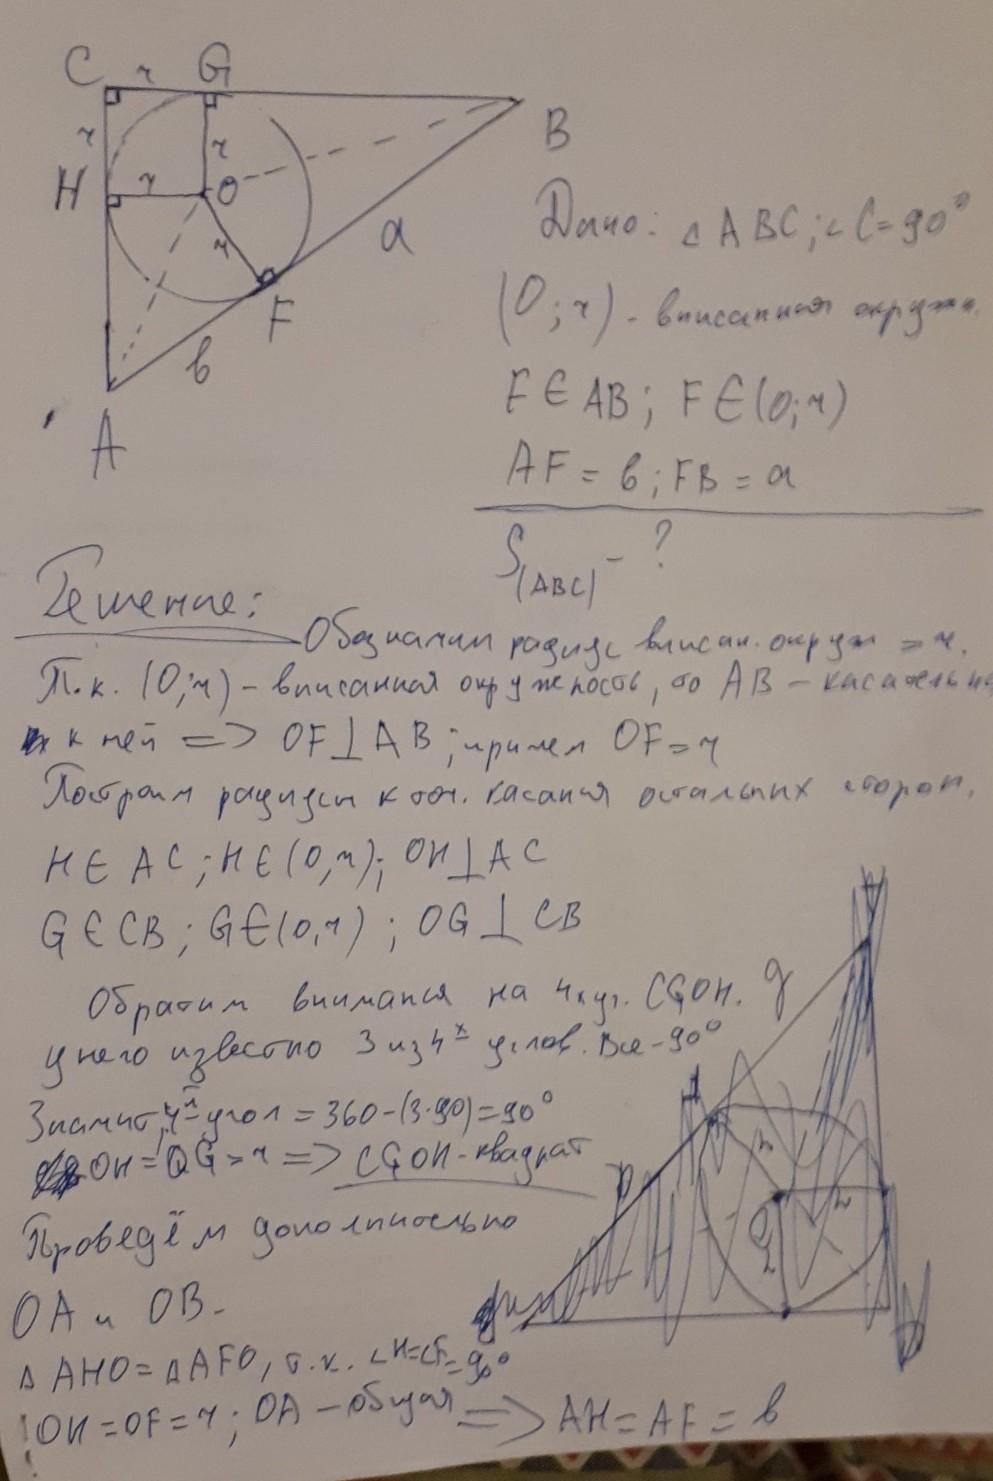 C r G
B
r
r
H r O
r
a
F
в
A
Дано: △ ABC; ∠C=90°
(O; r) - вписанная окружн.
F ∈ AB; F ∈ (O; r)
AF = в; FB = a
S(ABC) - ?
Решение:
Обозначим радиус вписан. окруж = r.
Т.к. (O; r) - вписанная окружность, то AB - касательна
к ней => OF⊥AB; причем OF=r
Построим радиусы к точ. касания остальных сторон.
H ∈ AC; H ∈ (O, r); OH⊥AC
G ∈ CB; G ∈ (O, r); OG ⊥ CB
Обратим внимания на 4хуг. CGOH.
у него известно 3 из 4х углов. Все - 90°
Значит, 4й угол = 360-(3·90)=90°
OH=OG=r => CGOH-квадрат
Проведём дополнительно
OA и OB.
△ AHO = △ AFO, т.к. ∠H=∠F=90°
! OH=OF=r; OA - общая => AH=AF=в